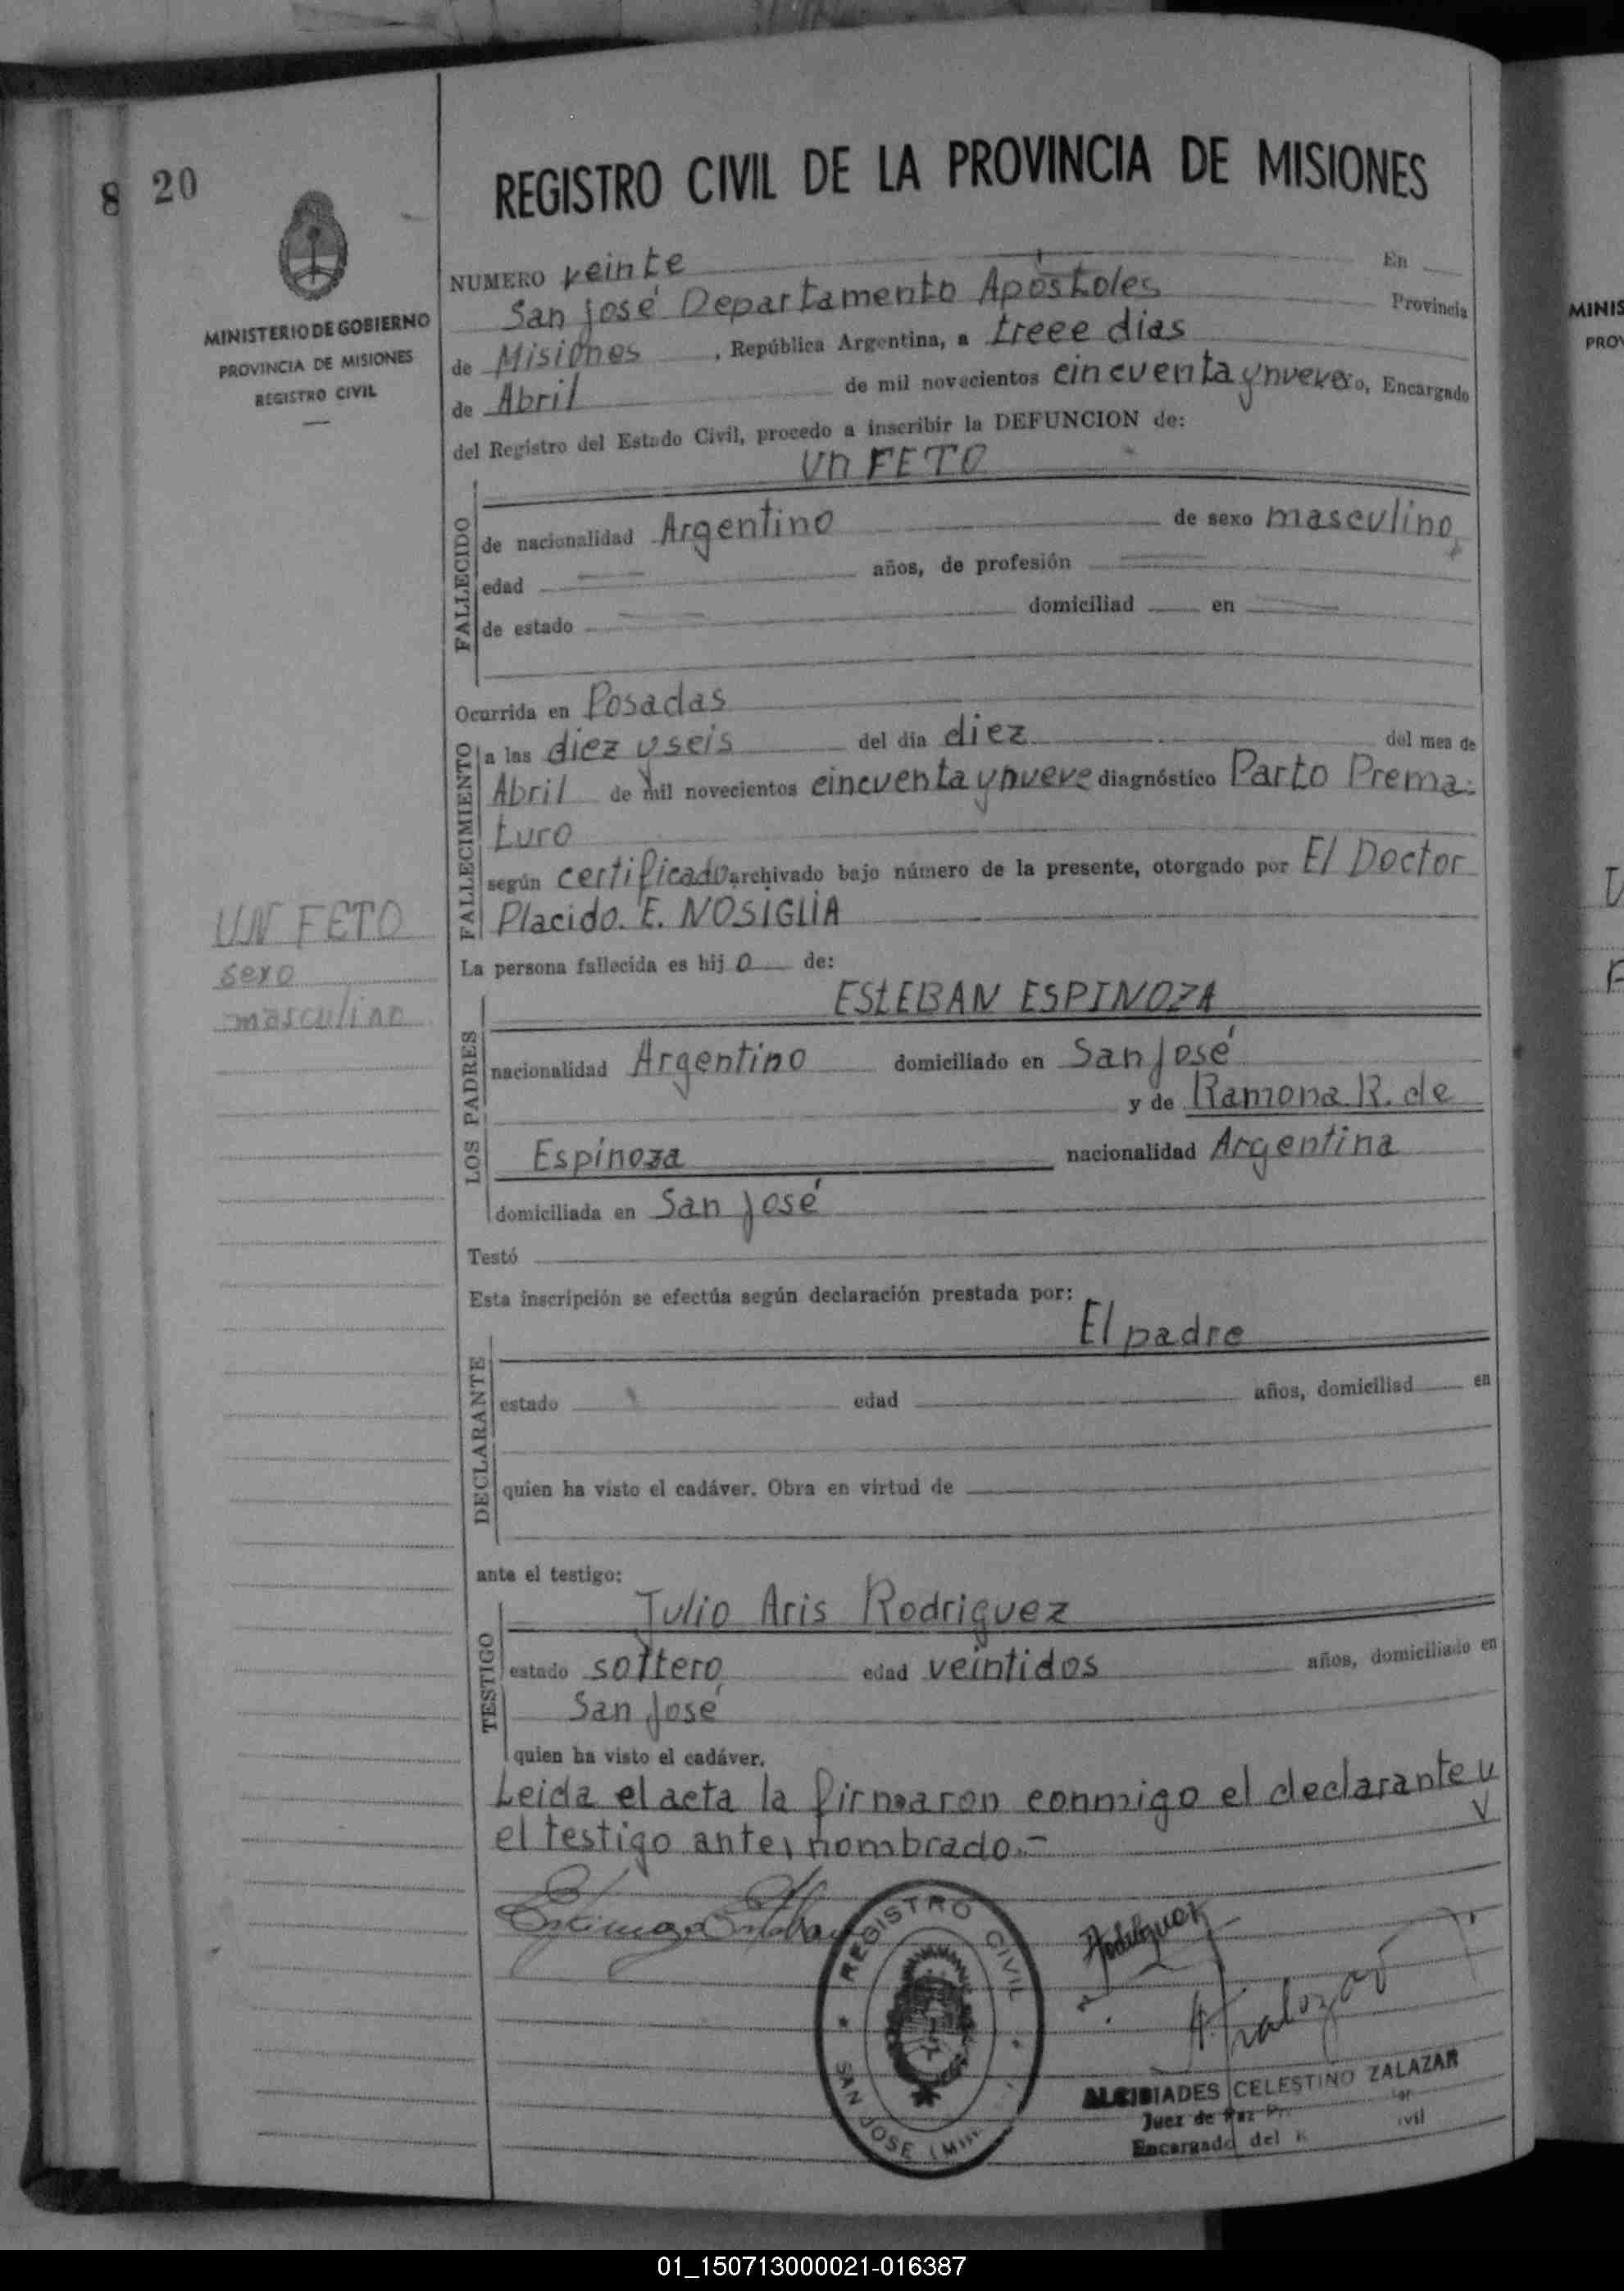 8 20
REGISTRO CIVIL DE LA PROVINCIA DE MISIONES
MINISTERIO DE GOBIERNO
PROVINCIA DE MISIONES
REGISTRO CIVIL
NUMERO veinte En
San José Departamento Apóstoles Provincia
de Misiones, República Argentina, a trece dias
de Abril de mil novecientos cincuenta y nueve, Encargado
del Registro del Estado Civil, procedo a inscribir la DEFUNCION de:
un FETO
FALLECIDO
de nacionalidad Argentino de sexo masculino
edad años, de profesión
de estado domiciliad en
Ocurrida en Posadas
FALLECIMIENTO
a las diez y seis del día diez del mes de
Abril de mil novecientos cincuenta y nueve diagnóstico Parto Prema-
turo
según certificado archivado bajo número de la presente, otorgado por El Doctor
Placido. E. NOSIGLIA
UN FETO
sexo
masculino
La persona fallecida es hijo de:
LOS PADRES
ESTEBAN ESPINOZA
nacionalidad Argentino domiciliado en San José
y de Ramona R. de
Espinoza nacionalidad Argentina
domiciliada en San José
Testó
Esta inscripción se efectúa según declaración prestada por:
DECLARANTE
El padre
estado edad años, domiciliad en
quien ha visto el cadáver. Obra en virtud de
ante el testigo:
TESTIGO
Julio Aris Rodriguez
estado soltero edad veintidos años, domiciliado en
San José
quien ha visto el cadáver.
Leida el acta la firmaron conmigo el declarante y
el testigo antes nombrado.-
REGISTRO CIVIL
SAN JOSE
ALCIBIADES CELESTINO ZALAZAR
Juez de Paz
Encargado del
MINIS
PRO
01_150713000021-016387